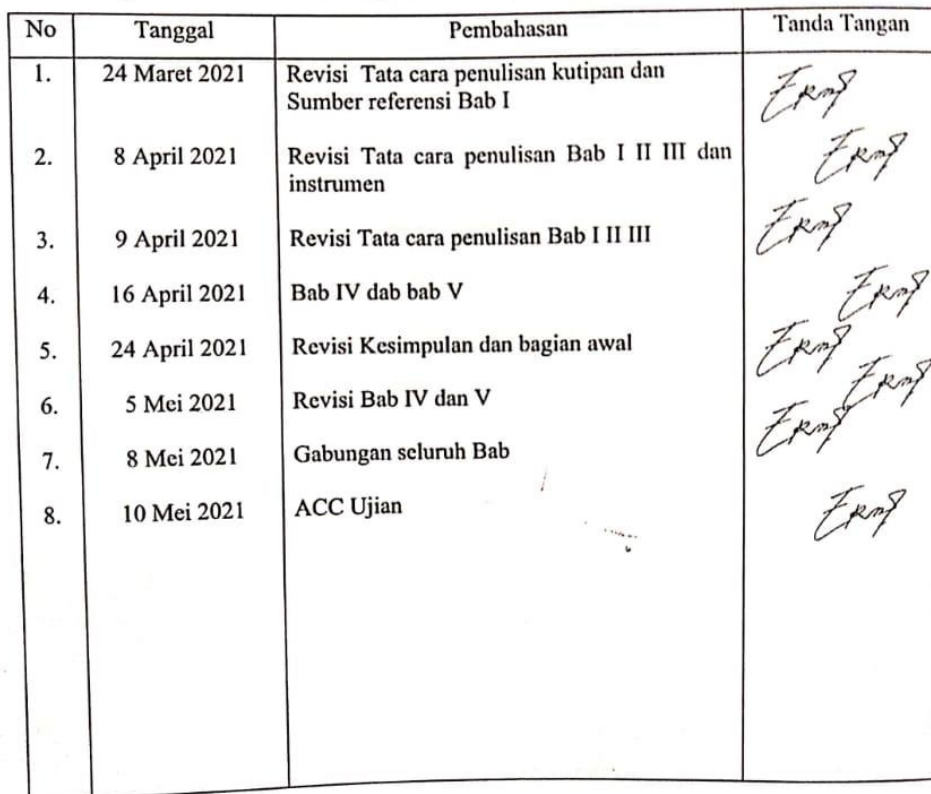 No Tanggal Pembahasan Tanda Tangan
1. 24 Maret 2021 Revisi Tata cara penulisan kutipan dan
Sumber referensi Bab I
2. 8 April 2021 Revisi Tata cara penulisan Bab I II III dan
instrumen
3. 9 April 2021 Revisi Tata cara penulisan Bab I II III
4. 16 April 2021 Bab IV dab bab V
5. 24 April 2021 Revisi Kesimpulan dan bagian awal
6. 5 Mei 2021 Revisi Bab IV dan V
7. 8 Mei 2021 Gabungan seluruh Bab
8. 10 Mei 2021 ACC Ujian